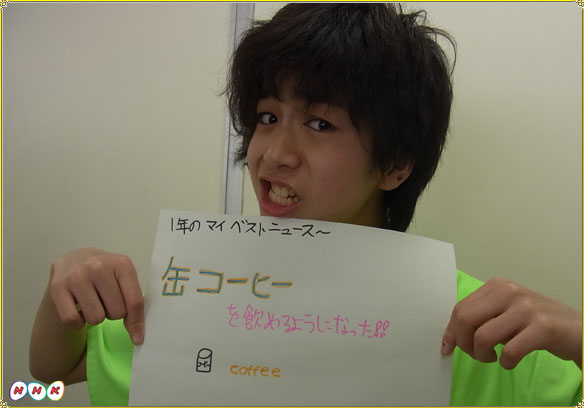 1年のマイベストニュース〜
缶コーヒー
を飲めるようになった!!
coffee
NHK